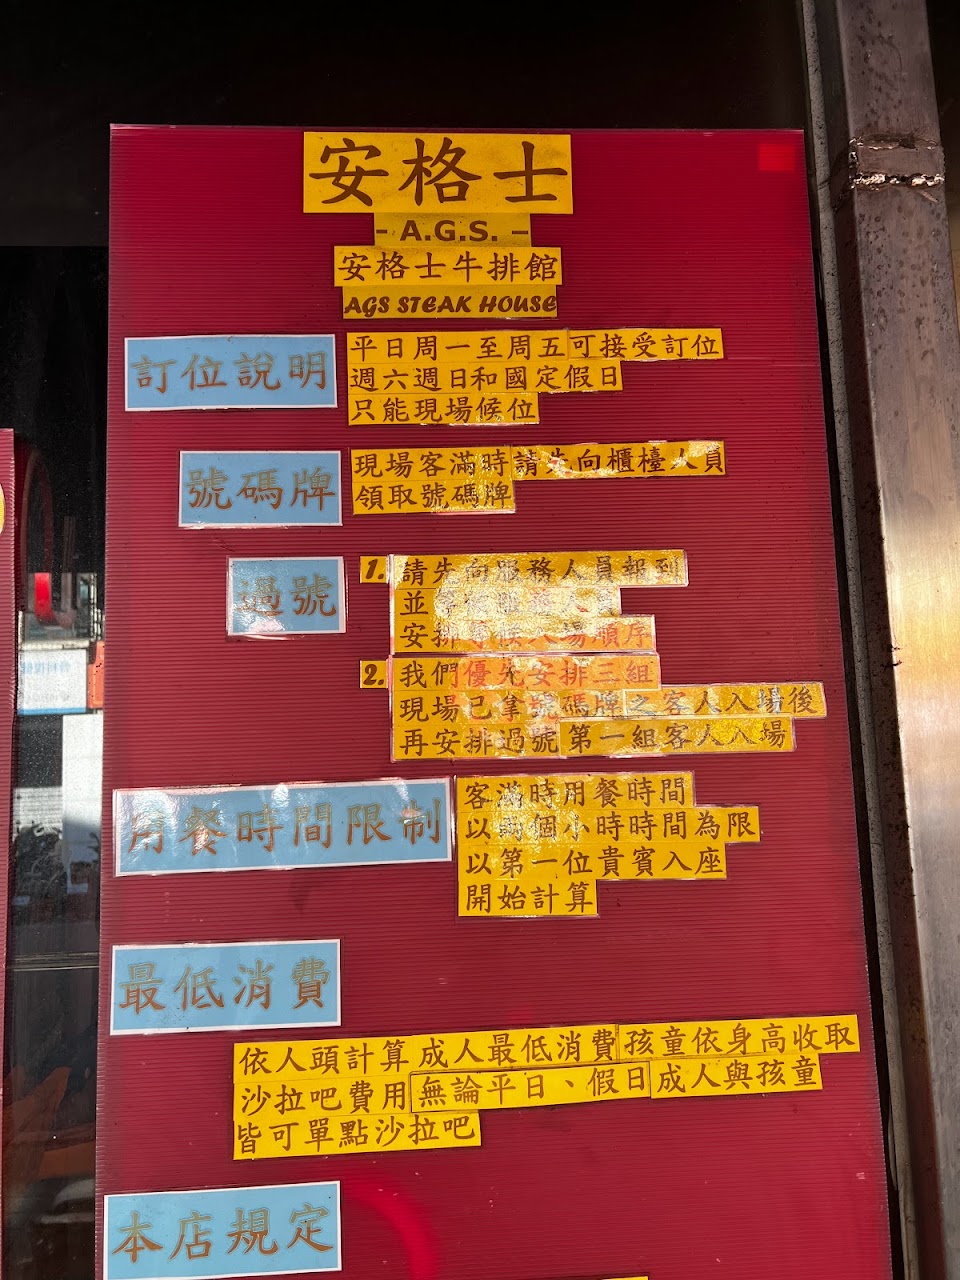 安格士
- A.G.S. -
安格士牛排館
AGS STEAK HOUSE
訂位說明
平日周一至周五可接受訂位
週六週日和國定假日
只能現場候位
號碼牌
現場客滿時請先向櫃檯人員
領取號碼牌
過號
1. 請先向服務人員報到
並等候服務人員
安排等候入場順序
2. 我們優先安排三組
現場已拿號碼牌之客人入場後
再安排過號第一組客人入場
用餐時間限制
客滿時用餐時間
以兩個小時時間為限
以第一位貴賓入座
開始計算
最低消費
依人頭計算成人最低消費孩童依身高收取
沙拉吧費用無論平日、假日成人與孩童
皆可單點沙拉吧
本店規定